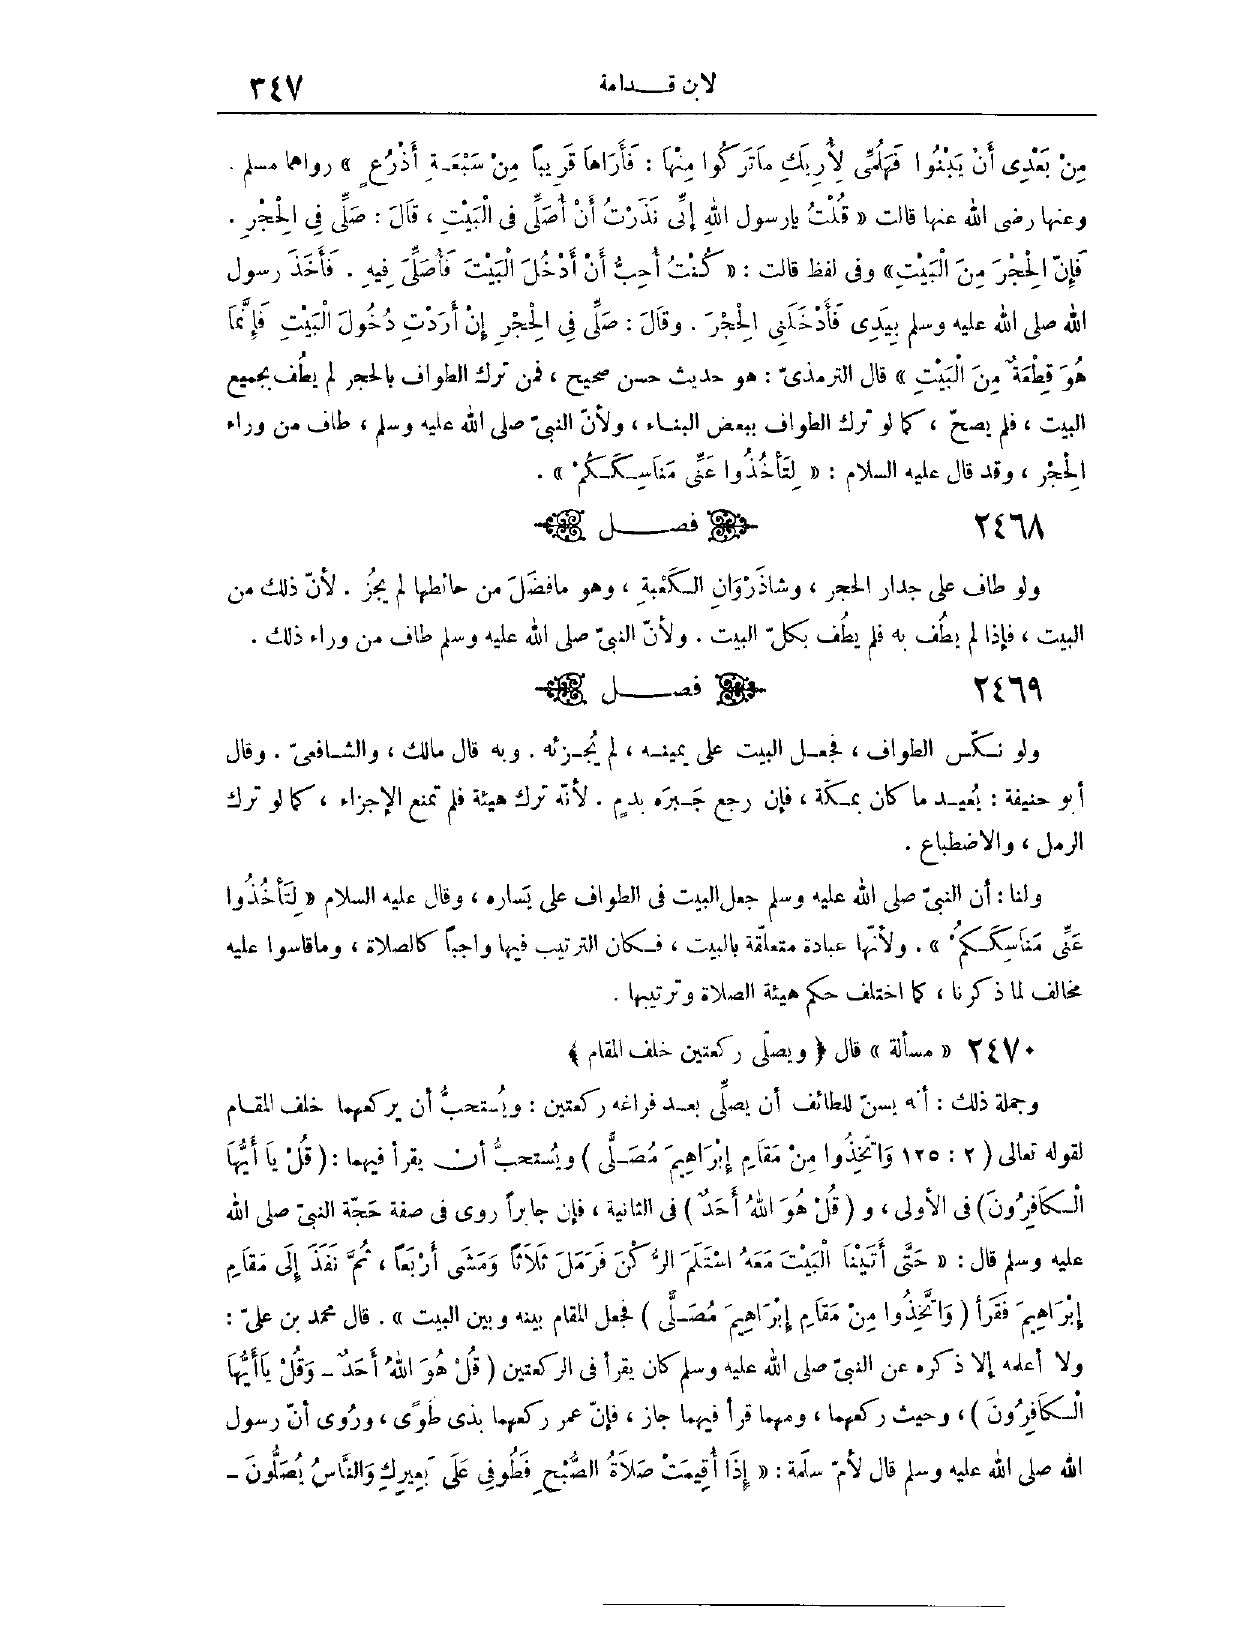 لابن قدامة ٣٤٧
مِنْ بَعْدِى أَنْ يَبْنُوا فَهَلُمِّى لِأُرِيَكِ مَاتَرَكُوا مِنْهَا : فَأَرَاهَا قَرِيباً مِنْ سَبْعَةِ أَذْرُعٍ » رواهما مسلم .
وعنها رضى الله عنها قالت « قُلْتُ يارسول اللهِ إنِّى نَذَرْتُ أَنْ أُصَلِّىَ فى الْبَيْتِ ، قَالَ : صَلِّى فِى الْحِجْرِ .
فَإِنّ الْحِجْرَ مِنَ الْبَيْتِ» وفى لفظ قالت : « كُنْتُ أُحِبُّ أَنْ أَدْخُلَ الْبَيْتَ فَأُصَلِّىَ فِيهِ . فَأَخَذَ رسول
الله صلى الله عليه وسلم بِيَدِى فَأَدْخَلَنِى الْحِجْرَ . وقَالَ : صَلِّى فِى الْحِجْرِ إنْ أَرَدْتِ دُخُولَ الْبَيْتِ فَإِنَّمَا
هُوَ قِطْعَةٌ مِنَ الْبَيْتِ » قال الترمذىّ : هو حديث حسن صحيح ، فمن ترك الطواف بالحجر لم يطُف بجميع
البيت ، فلم يصحّ ، كما لو ترك الطواف ببعض البناء ، ولأنّ النبىّ صلى الله عليه وسلم ، طاف من وراء
الْحِجْر ، وقد قال عليه السلام : « لِتَأْخُذُوا عَنِّى مَنَاسِكَكُمْ » .
٢٤٦٨ فصل
ولو طاف على جدار الحجر ، وشاذَرْوَانِ الكَعْبةِ ، وهو مافضَلَ من حائطها لم يجُز . لأنّ ذلك من
البيت ، فإذا لم يطُف به فلم يطُف بكلّ البيت . ولأنّ النبىّ صلى الله عليه وسلم طاف من وراء ذلك .
٢٤٦٩ فصل
ولو نكّس الطواف ، فجعل البيت على يمينه ، لم يُجزئه . وبه قال مالك ، والشافعىّ . وقال
أبو حنيفة : يُعيد ما كان بمكّة ، فإن رجع جَبرَه بدمٍ . لأنّه ترك هيئة فلم تمنع الإجزاء ، كما لو ترك
الرمل ، والاضطباع .
ولنا : أن النبىّ صلى الله عليه وسلم جعل البيت فى الطواف على يَساره ، وقال عليه السلام « لِتَأْخُذُوا
عَنِّى مَنَاسِكَكُمْ » . ولأنّها عبادة متعلّقة بالبيت ، فكان الترتيب فيها واجباً كالصلاة ، وماقاسوا عليه
مخالف لما ذكرنا ، كما اختلف حكم هيئة الصلاة وترتيبها .
٢٤٧٠ « مسألة » قال ﴿ ويصلّى ركعتين خلف المقام ﴾
وجملة ذلك : أنه يسنّ للطائف أن يصلِّى بعد فراغه ركعتين : ويُستحبُّ أن يركعهما خلف المقام
لقوله تعالى ( ٢ : ١٢٥ وَاتَّخِذُوا مِنْ مَقَامِ إِبْرَاهِيمَ مُصَلًّى ) ويُستحبُّ أن يقرأ فيهما : ( قُلْ يَا أَيُّهَا
الْكَافِرُونَ) فى الأولى ، و ( قُلْ هُوَ اللهُ أَحَدٌ ) فى الثانية ، فإن جابراً روى فى صفة حَجّة النبىّ صلى الله
عليه وسلم قال : « حَتَّى أَتَيْنَا الْبَيْتَ مَعَهُ اسْتَلَمَ الرُّكْنَ فَرَمَلَ ثَلَاثَاً وَمَشَى أَرْبَعَاً ، ثُمَّ نَفَذَ إِلَى مَقَامِ
إِبْرَاهِيمَ فَقَرأَ ( وَاتَّخِذُوا مِنْ مَقَامِ إِبْرَاهِيمَ مُصَلًّى ) فجعل المقام بينه وبين البيت » . قال محمد بن علىّ :
ولا أعلمه إلا ذكره عن النبىّ صلى الله عليه وسلم كان يقرأ فى الركعتين ( قُلْ هُوَ اللهُ أَحَدٌ ـ وَقُلْ يَاأَيُّهَا
الْكَافِرُونَ ) ، وحيث ركعهما ، ومهما قرأ فيهما جاز ، فإنّ عمر ركعهما بذى طُوًى ، ورُوى أنّ رسول
الله صلى الله عليه وسلم قال لأمّ سلَمة : « إِذَا أُقِيمَتْ صَلَاةُ الصُّبْحِ فَطُوفِى عَلَى بَعِيرِكِ وَالنَّاسُ يُصَلُّونَ ـ